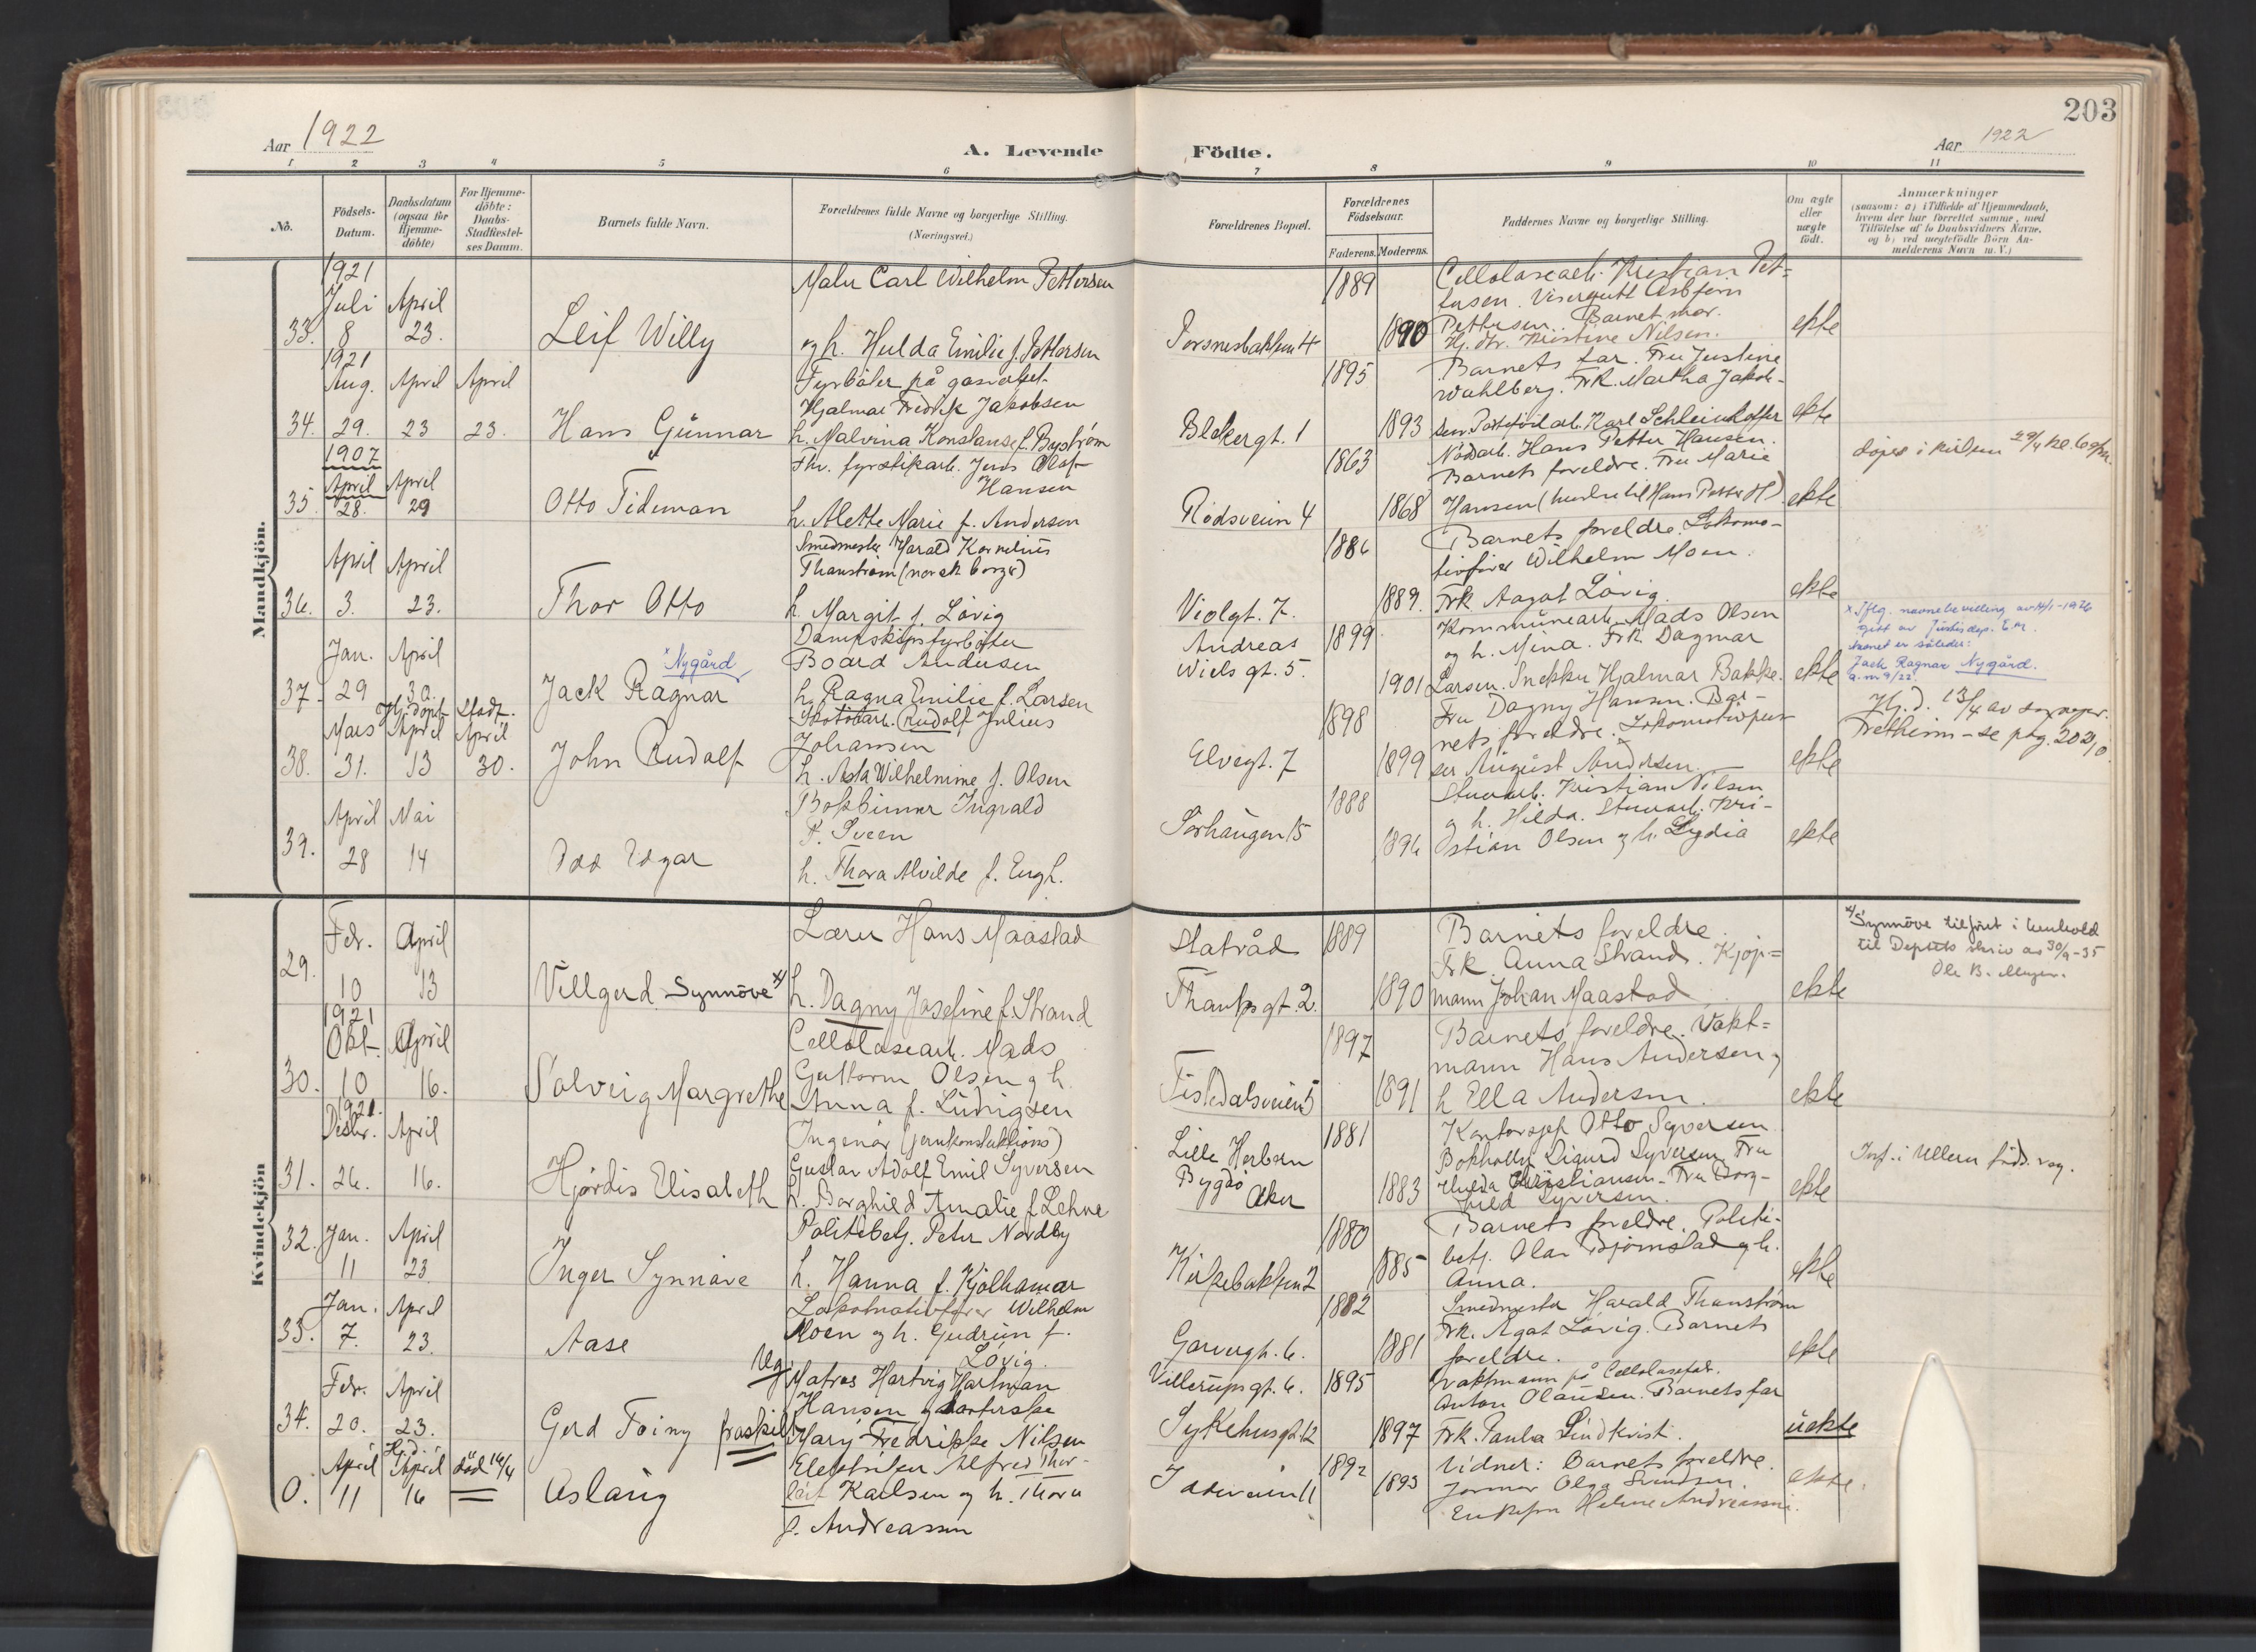 203
Aar 1922
A. Levende Födte.
Aar 1922
1 2 3 4 5 6 7 8 9 10 11
No.
Födsels-
Datum.
Daabsdatum
(ogsaa for
Hjemme-
döbte)
For Hjemme-
döbte:
Daabs-
Stadfæstel-
ses Datum.
Barnets fulde Navn.
Forældrenes fulde Navne og borgerlige Stilling.
(Næringsvei.)
Forældrenes Bopæl.
Forældrenes
Födselsaar.
Faderens. Moderens.
Faddernes Navne og borgerlige Stilling.
Om ægte
eller
uægte
født.
Anmærkninger
(saasom: a) i Tilfælde af Hjemmedaab,
hvem der har forrettet samme, med
Tilföielse af to Daabsvidners Navne,
og b) ved uægtefödte Börn An-
melderens Navn m. V.)
Mandkjön.
33.
1921
Juli
8
April
23.
Leif Willy
Maler Carl Wilhelm Pettersen
og h. Hulda Emilie f. Pettersen
Torsnesbakken 4
1889
1890
Cellolosearb. Kristian Pet=
tersen. Visergutt Asbjørn
Pettersen. Barnet mor.
Hj. dtr. Kristine Nilsen.
ekte
34.
1921
Aug.
29.
April
23
April
23.
Hans Gunnar
Fyrböter på gasverket
Hjalmar Fredrik Jakobsen
h. Malvina Konstanse f. Byström
Blekergt. 1
1895
1893
Barnets far. Fru Justine
Wahlberg. Frk. Martha Jakob-
sen. Karl Schleinkoffer
ekte
35.
1907
April
28.
April
29
Otto Tideman
Fhv. fyrstikarb. Jens Olaf
Hansen
h. Alette Marie f. Andersen
Rödsveien 4
1863
1868
Hans Petter Hansen.
Barnets foreldre. Fru Marie
Hansen (hustru til Hans Petter H)
ekte
döpes i kirken 29/4 kl. 6 epm.
36.
April
3.
April
23.
Thor Otto
Smedmester Harald Kornelius
Thanström (norsk borger)
h. Margit f. Lövig
Violgt. 7.
1886
1889.
Barnets foreldre. Lokomo-
tivförer Wilhelm Moen.
Frk. Aagot Lövig.
ekte
37
Jan.
29
April
30.
Jack Ragnar
x Nygård
Dampskipsfyrböter
Board Andersen
h. Ragna Emilie f. Larsen
Andreas
Wiels gt. 5.
1899
1901
Kommunearb. Mads Olsen
og h. Mina. Frk. Dagmar
Larsen. Snekker Hjalmar Bakke.
ekte
x Iflg. navnebevilling av 14/1-1926
gitt av Justisdep. E.M.
navnet er således:
Jack Ragnar Nygård.
38.
Mars
31.
Hj.döpt
April
13
Stadf.
April
30.
John Rudolf
Skotöiarb. Rudolf Julius
Johansen
h. Asta Wilhelmine f. Olsen
Elvegt. 7
1898
1899
Fru Dagny Hansen. Bar-
nets foreldre. Lokomotivpus-
ser August Andersen.
ekte
Hj. d. 13/4 av sogneprest
Fretheim - se pag. 202, 0.
39.
April
28
Mai
14
Odd Edgar
Bokbinner Ingvald
P. Sveen
h. Thora Alvilde f. Engh.
Sörhaugen 15
1888
1896
Stuearb. Kristian Nilsen
og h. Hilda. Stuearb. Kri-
stian Olsen og h. Lydia
ekte
Kvindekjön
29.
Febr.
10
April
13
Villgerd Synnöve x)
Lærer Hans Maastad
h. Dagny Josefine f. Strand
Statråd
Thanksgt. 2.
1889
1890
Barnets foreldre.
Frk. Anna Strand. Kjöp=
mann Johan Maastad
ekte
x) Synnöve tilföiet i henhold
til Deptets skriv av 30/9-35
Ole B. Meyer.
30.
1921
Okt.
10
April
16.
Solveig Margrethe
Cellolosearb. Mads
Guttorm Olsen og h.
Anna f. Ludvigsen
Tistedalsveien 5
1897
1891
Barnets foreldre. Vakt=
mann Hans Andersen og
h Ella Andersen.
ekte
31.
1921.
Desbr.
26.
April
16.
Hjördis Elisabeth
Ingeniör (jernkonstruktions)
Gustav Adolf Emil Syversen
h. Borghild Amalie f. Lehne
Lille Herbern
Bygdö
Aker
1881
1883
Kontorsjef Otto Syversen
Bokholder Sigurd Syversen. Fru
Hulda Kristiansen. Fru Borg-
hild Syversen.
ekte
Inf. i Ullern föds. reg.
32.
Jan.
11
April
23
Inger Synnöve
Politibetj. Peter Nordby
h. Hanna f. Kjölhamar
Kirkebakken 2
1880
1885
Barnets foreldre. Politi-
betj. Olav Björnstad og h.
Anna.
ekte
33.
Jan.
7.
April
23.
Aase
Lokomotivförer Wilhelm
Moen og h. Gudrun f.
Lövig.
Garvergt. 6.
1882
1881
Smedmester Harald Thanström
Frk. Agot Lövig. Barnets
foreldre.
ekte
34.
Febr.
20.
April
23.
Gerd Toiny
Ug.
fraskilt
Matros Hartvig Hartman
Hansen og
Mary Fredrikke Nilsen
Villerups gt. 6.
Sykehusgt. 12
1895
1897
Vaktmann på Cellolosefab.
Anton Olausen. Barnets far
Frk. Paula Lindkvist.
uekte
0.
April
11
Hj.d.
April
16
död 16/4
Aslaug
Elektriker Alfred Thor-
leif Karlsen og h. Thora
f. Andreassen
Iddeveien 11
1892
1893
Vidner: Barnets foreldre.
Jormor Olga Svendsen.
Enkefru Helene Andreassen.
ekte.